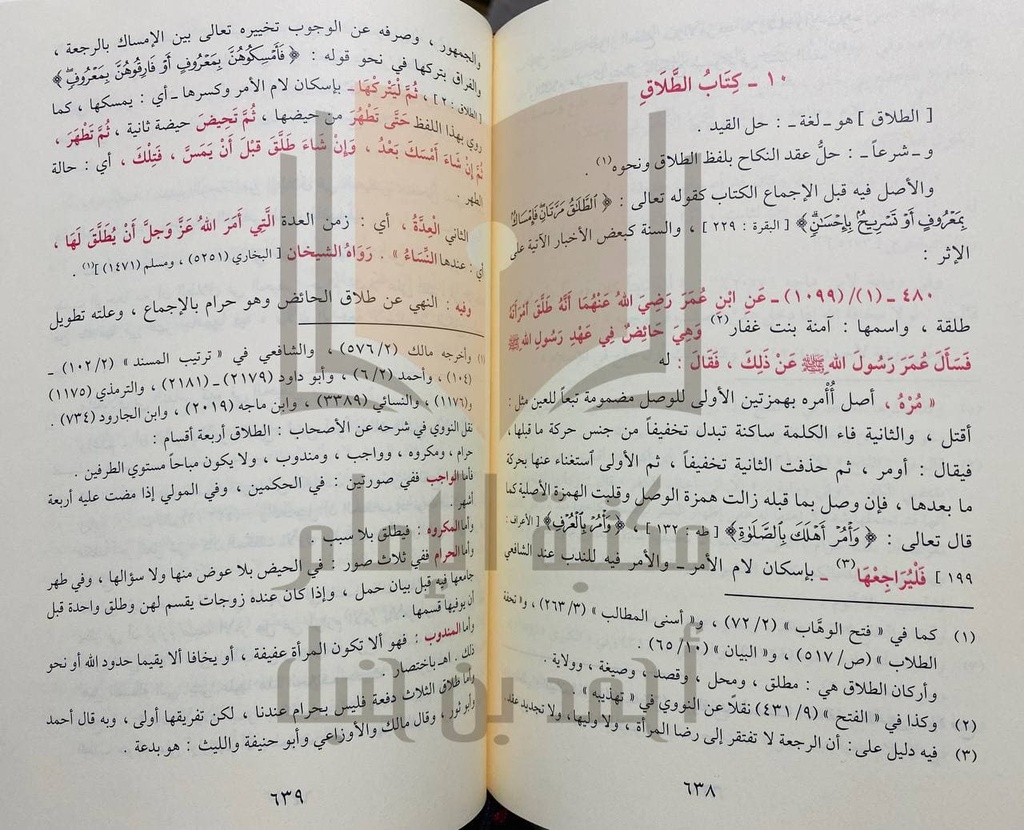 ١٠ ـ كِتَابُ الطَّلَاقِ
[ الطلاق ] هو ـ لغة ـ : حل القيد .
و ـ شرعاً ـ : حلُّ عقد النكاح بلفظ الطلاق ونحوه(١) .
والأصل فيه قبل الإجماع الكتاب كقوله تعالى : ﴿ ٱلطَّلَٰقُ مَرَّتَانِ فَإِمْسَاكٌۢ
بِمَعْرُوفٍ أَوْ تَسْرِيحٌۢ بِإِحْسَٰنٍ ﴾ [ البقرة : ٢٢٩ ] ، والسنة كبعض الأخبار الآتية على
الإثر :
٤٨٠ ـ (١)/ (١٠٩٩) ـ عَنِ ابْنِ عُمَرَ رَضِيَ اللهُ عَنْهُمَا أَنَّهُ طَلَّقَ امْرَأَتَهُ
طلقة ، واسمها : آمنة بنت غفار(٢) وَهِيَ حَائِضٌ فِي عَهْدِ رَسُولِ اللهِ ﷺ
فَسَأَلَ عُمَرَ رَسُولَ اللهِ ﷺ عَنْ ذَلِكَ ، فَقَالَ : له
« مُرْهُ ، أصل أُأْمره بهمزتين الأولى للوصل مضمومة تبعاً للعين مثل :
أقتل ، والثانية فاء الكلمة ساكنة تبدل تخفيفاً من جنس حركة ما قبلها ،
فيقال : أومر ، ثم حذفت الثانية تخفيفاً ، ثم الأولى استغناء عنها بحركة
ما بعدها ، فإن وصل بما قبله زالت همزة الوصل وقلبت الهمزة الأصلية كما
قال تعالى : ﴿ وَأْمُرْ أَهْلَكَ بِالصَّلَوٰةِ ﴾ [ طه : ١٣٢ ] ، ﴿ وَأْمُرْ بِالْعُرْفِ ﴾ [ الأعراف :
١٩٩ ] فَلْيُرَاجِعْهَا(٣) ـ بإسكان لام الأمر ـ والأمر فيه للندب عند الشافعي
(١) كما في « فتح الوهَّاب » (٢/ ٧٢) ، و« أسنى المطالب » (٣/ ٢٦٣) ، و« تحفة
الطلاب » (ص/ ٥١٧) ، و« البيان » (١٠/ ٦٥) .
وأركان الطلاق هي : مطلق ، ومحل ، وقصد ، وصيغة ، وولاية .
(٢) وكذا في « الفتح » (٩/ ٤٣١) نقلاً عن النووي في « تهذيبه » .
(٣) فيه دليل على : أن الرجعة لا تفتقر إلى رضا المرأة ، ولا وليها، ولا تجديد عقد
٦٣٨
والجمهور ، وصرفه عن الوجوب تخييره تعالى بين الإمساك بالرجعة ،
والفراق بتركها في نحو قوله : ﴿ فَأَمْسِكُوهُنَّ بِمَعْرُوفٍ أَوْ فَارِقُوهُنَّ بِمَعْرُوفٍ ﴾
[ الطلاق : ٢ ] ، ثُمَّ لْيَتْرُكْهَا ـ بإسكان لام الأمر وكسرها ـ أي : يمسكها ، كما
روي بهذا اللفظ حَتَّى تَطْهُرَ من حيضها ، ثُمَّ تَحِيضَ حيضة ثانية ، ثُمَّ تَطْهَرَ ،
ثُمَّ إِنْ شَاءَ أَمْسَكَ بَعْدُ ، وَإِنْ شَاءَ طَلَّقَ قَبْلَ أَنْ يَمَسَّ ، فَتِلْكَ ، أي : حالة
الطهر .
الثاني الْعِدَّةُ ، أي : زمن العدة الَّتِي أَمَرَ اللهُ عَزَّ وَجَلَّ أَنْ يُطَلَّقَ لَهَا ،
أي : عندها النِّسَاءُ » . رَوَاهُ الشيخان [ البخاري (٥٢٥١) ، ومسلم (١٤٧١) ](١) .
وفيه : النهي عن طلاق الحائض وهو حرام بالإجماع ، وعلته تطويل
(١) وأخرجه مالك (٢/ ٥٧٦) ، والشافعي في « ترتيب المسند » (٢/ ١٠٢) ـ
(١٠٤) ، وأحمد (٢/ ٦) ، وأبو داود (٢١٧٩) ـ (٢١٨١) ، والترمذي (١١٧٥)
و(١١٧٦) ، والنسائي (٣٣٨٩) ، وابن ماجه (٢٠١٩) ، وابن الجارود (٧٣٤) .
نقل النووي في شرحه عن الأصحاب : الطلاق أربعة أقسام :
حرام ، ومكروه ، وواجب ، ومندوب ، ولا يكون مباحاً مستوي الطرفين .
فأما الواجب ففي صورتين : في الحكمين ، وفي المولي إذا مضت عليه أربعة
أشهر .
وأما المكروه : فيطلق بلا سبب .
وأما الحرام ففي ثلاث صور : في الحيض بلا عوض منها ولا سؤالها ، وفي طهر
جامعها فيه قبل بيان حمل ، وإذا كان عنده زوجات يقسم لهن وطلق واحدة قبل
أن يوفيها قسمها .
وأما المندوب : فهو ألا تكون المرأة عفيفة ، أو يخافا ألا يقيما حدود الله أو نحو
ذلك . اهـ باختصار .
وأما طلاق الثلاث دفعة فليس بحرام عندنا ، لكن تفريقها أولى ، وبه قال أحمد
وأبو ثور ، وقال مالك والأوزاعي وأبو حنيفة والليث : هو بدعة .
٦٣٩
مكتبة الإمام
أحمد بن حنبل